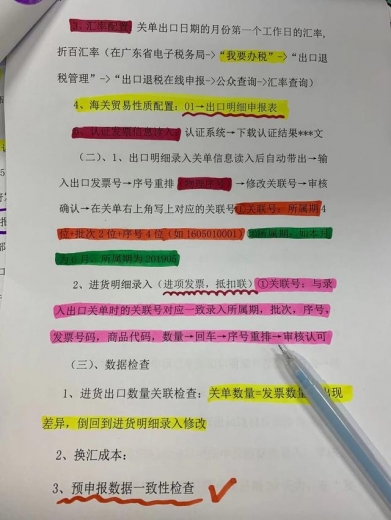 3、汇率配置 关单出口日期的月份第一个工作日的汇率,
折百汇率（在广东省电子税务局->“我要办税”->“出口退
税管理”->“出口退税在线申报->公众查询->汇率查询）
4、海关贸易性质配置：01→出口明细申报表
5、认证发票信息读入：认证系统→下载认证结果***文
(二)、1、出口明细录入关单信息读入后自动带出→输
入出口发票号→序号重排 →修改关联号→审核
确认→在关单右上角写上对应的关联号①关联号：所属期4
位+批次2位+序号4位（如1605010001）②所属期：如本月
为 月，所属期为201905
2、进货明细录入（进项发票，抵扣联）①关联号：与录
入出口关单时的关联号对应一致录入所属期，批次，序号，
发票号码，商品代码，数量→回车→序号重排→审核认可
(三)、数据检查
1、进货出口数量关联检查：关单数量=发票数量 出现
差异，倒回到进货明细录入修改
2、换汇成本：
3、预申报数据一致性检查